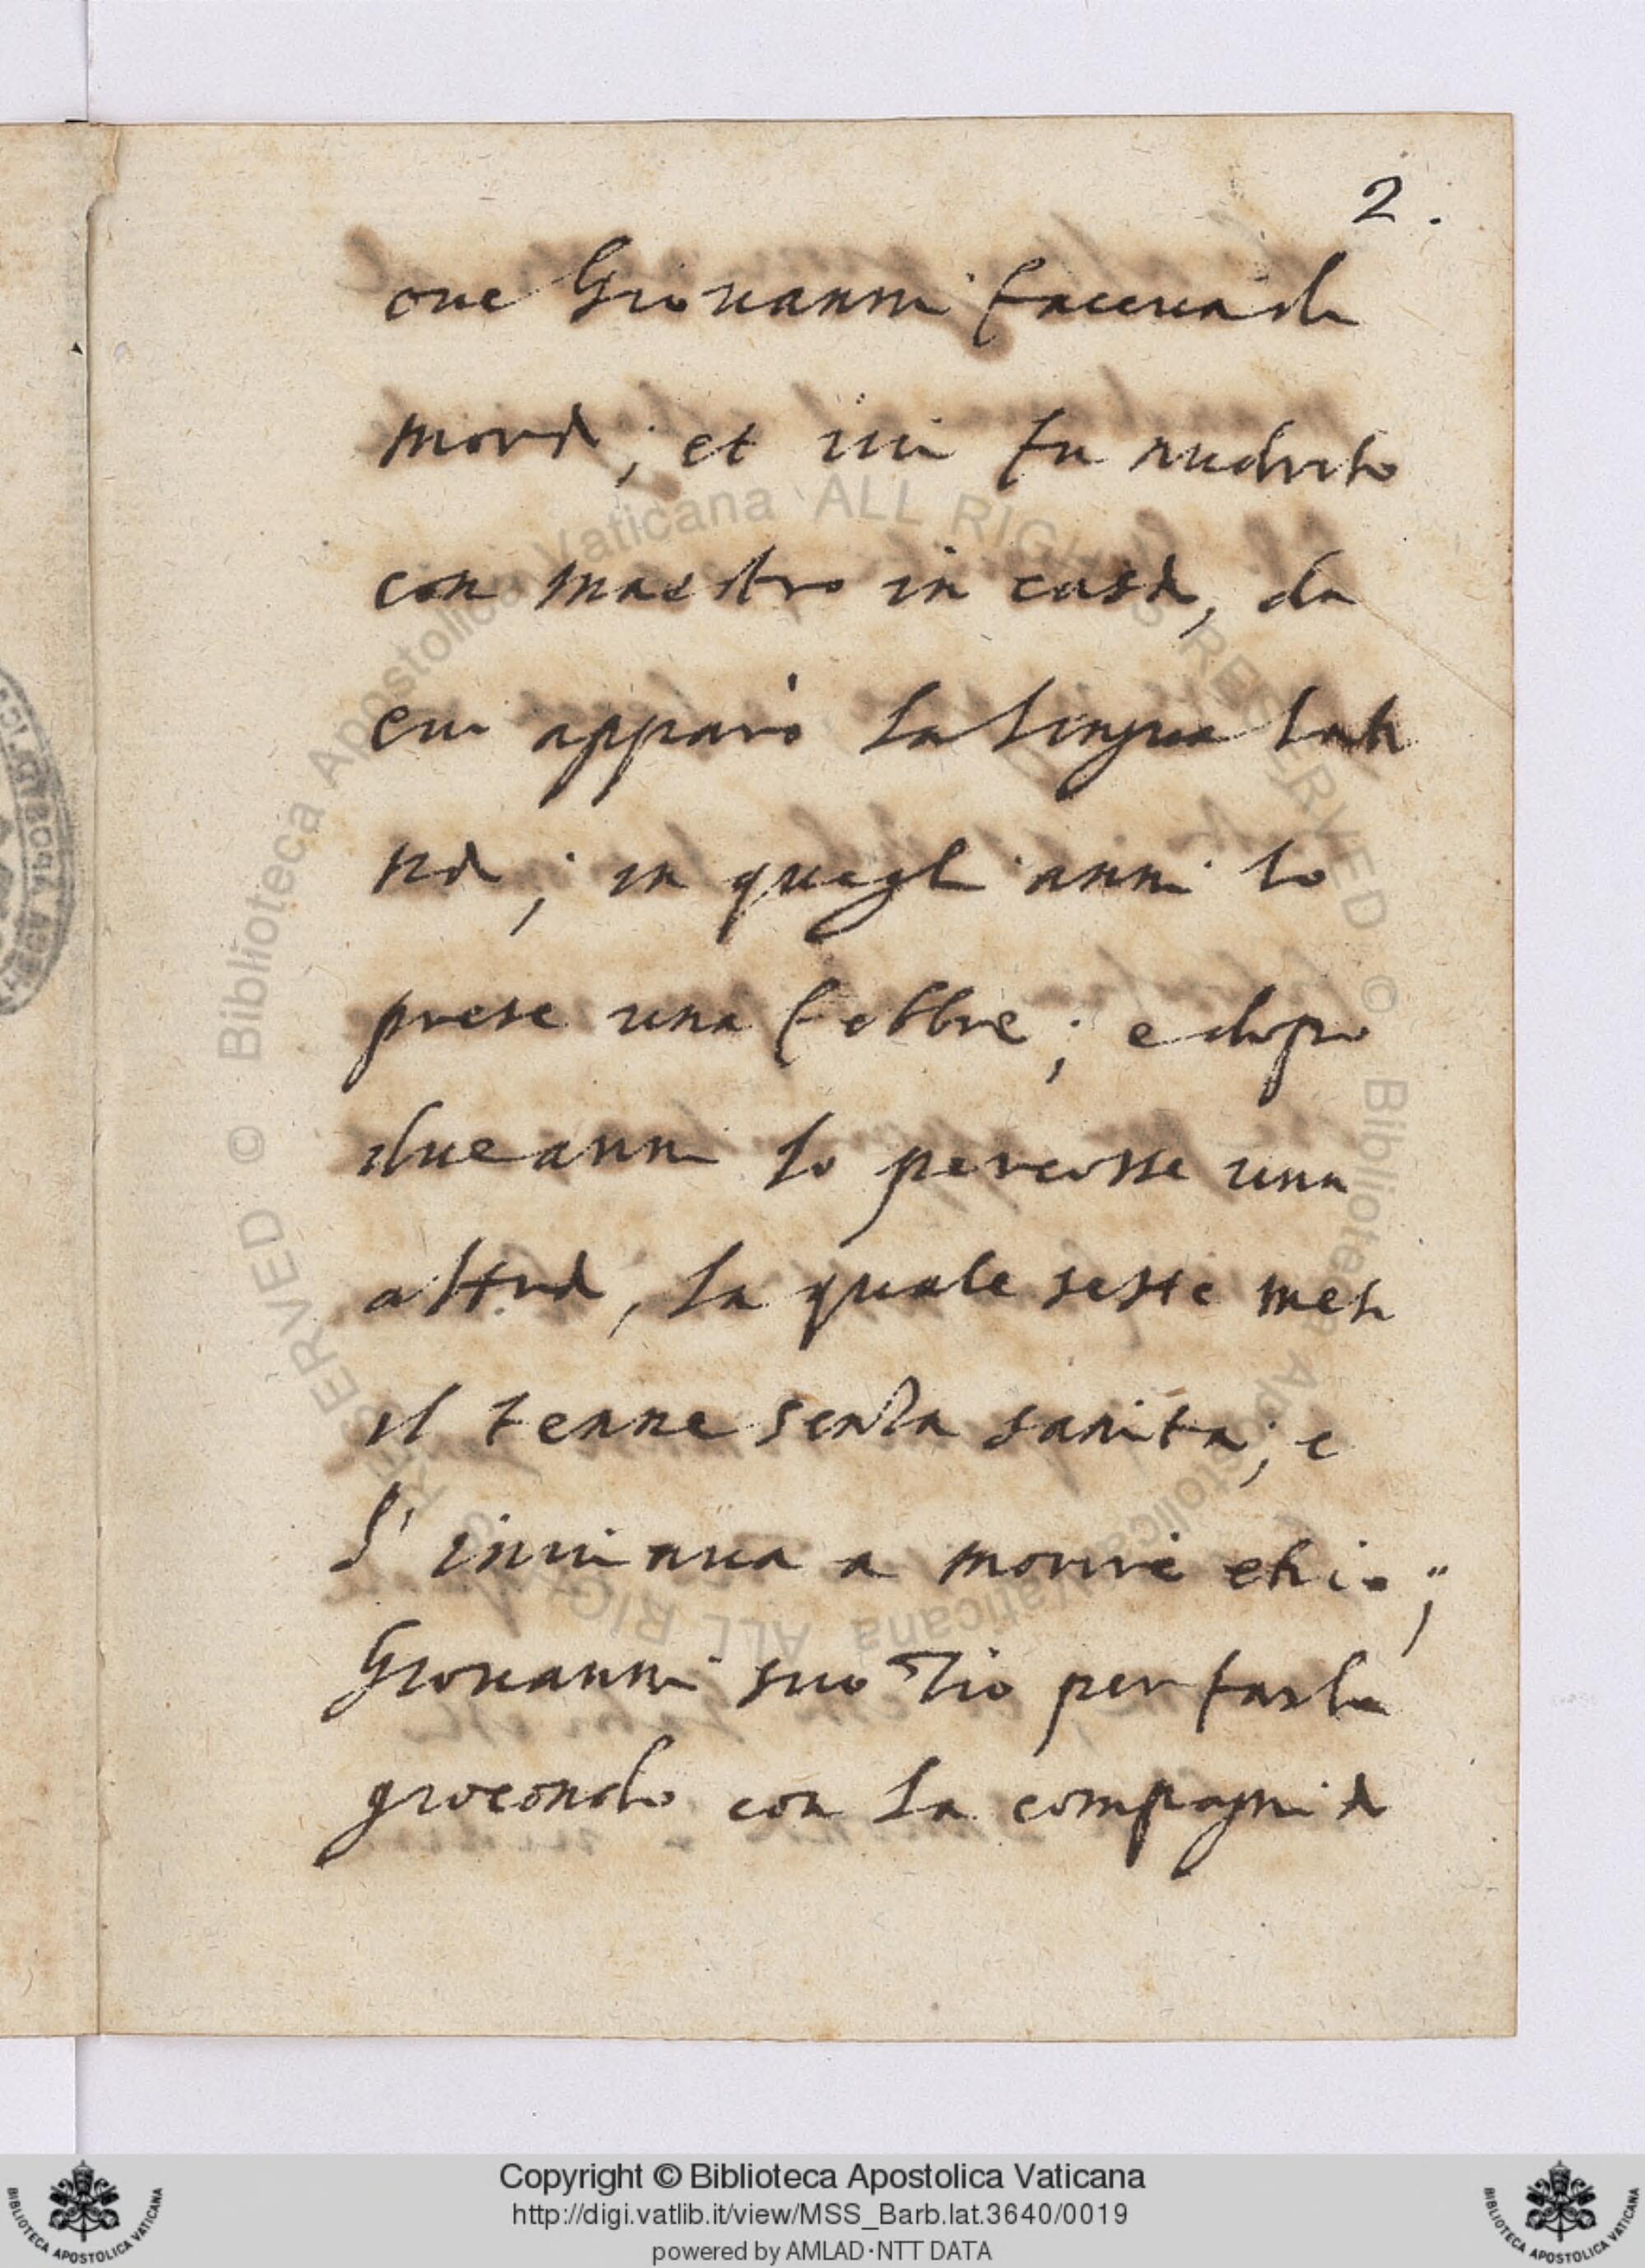 2.
oue Giouanni faceua di
mora; et iui fu nudrito
con maestro in casa, da
cui apparò la lingua lati
na; in quegli anni lo
prese una febbre; e dopo
due anni lo percosse una
altra, la quale sette mesi
il tenne senza sanita; e
l'inuiaua a morire etico;
Giouanni suo Zio per farlo
giocondo con la compagnia
Biblioteca Apostolica Vaticana ALL RIGHTS RESERVED ©
Biblioteca Apostolica Vaticana ALL RIGHTS RESERVED ©
Copyright © Biblioteca Apostolica Vaticana
http://digi.vatlib.it/view/MSS_Barb.lat.3640/0019
powered by AMLAD·NTT DATA
BIBLIOTECA APOSTOLICA VATICANA
BIBLIOTECA APOSTOLICA VATICANA